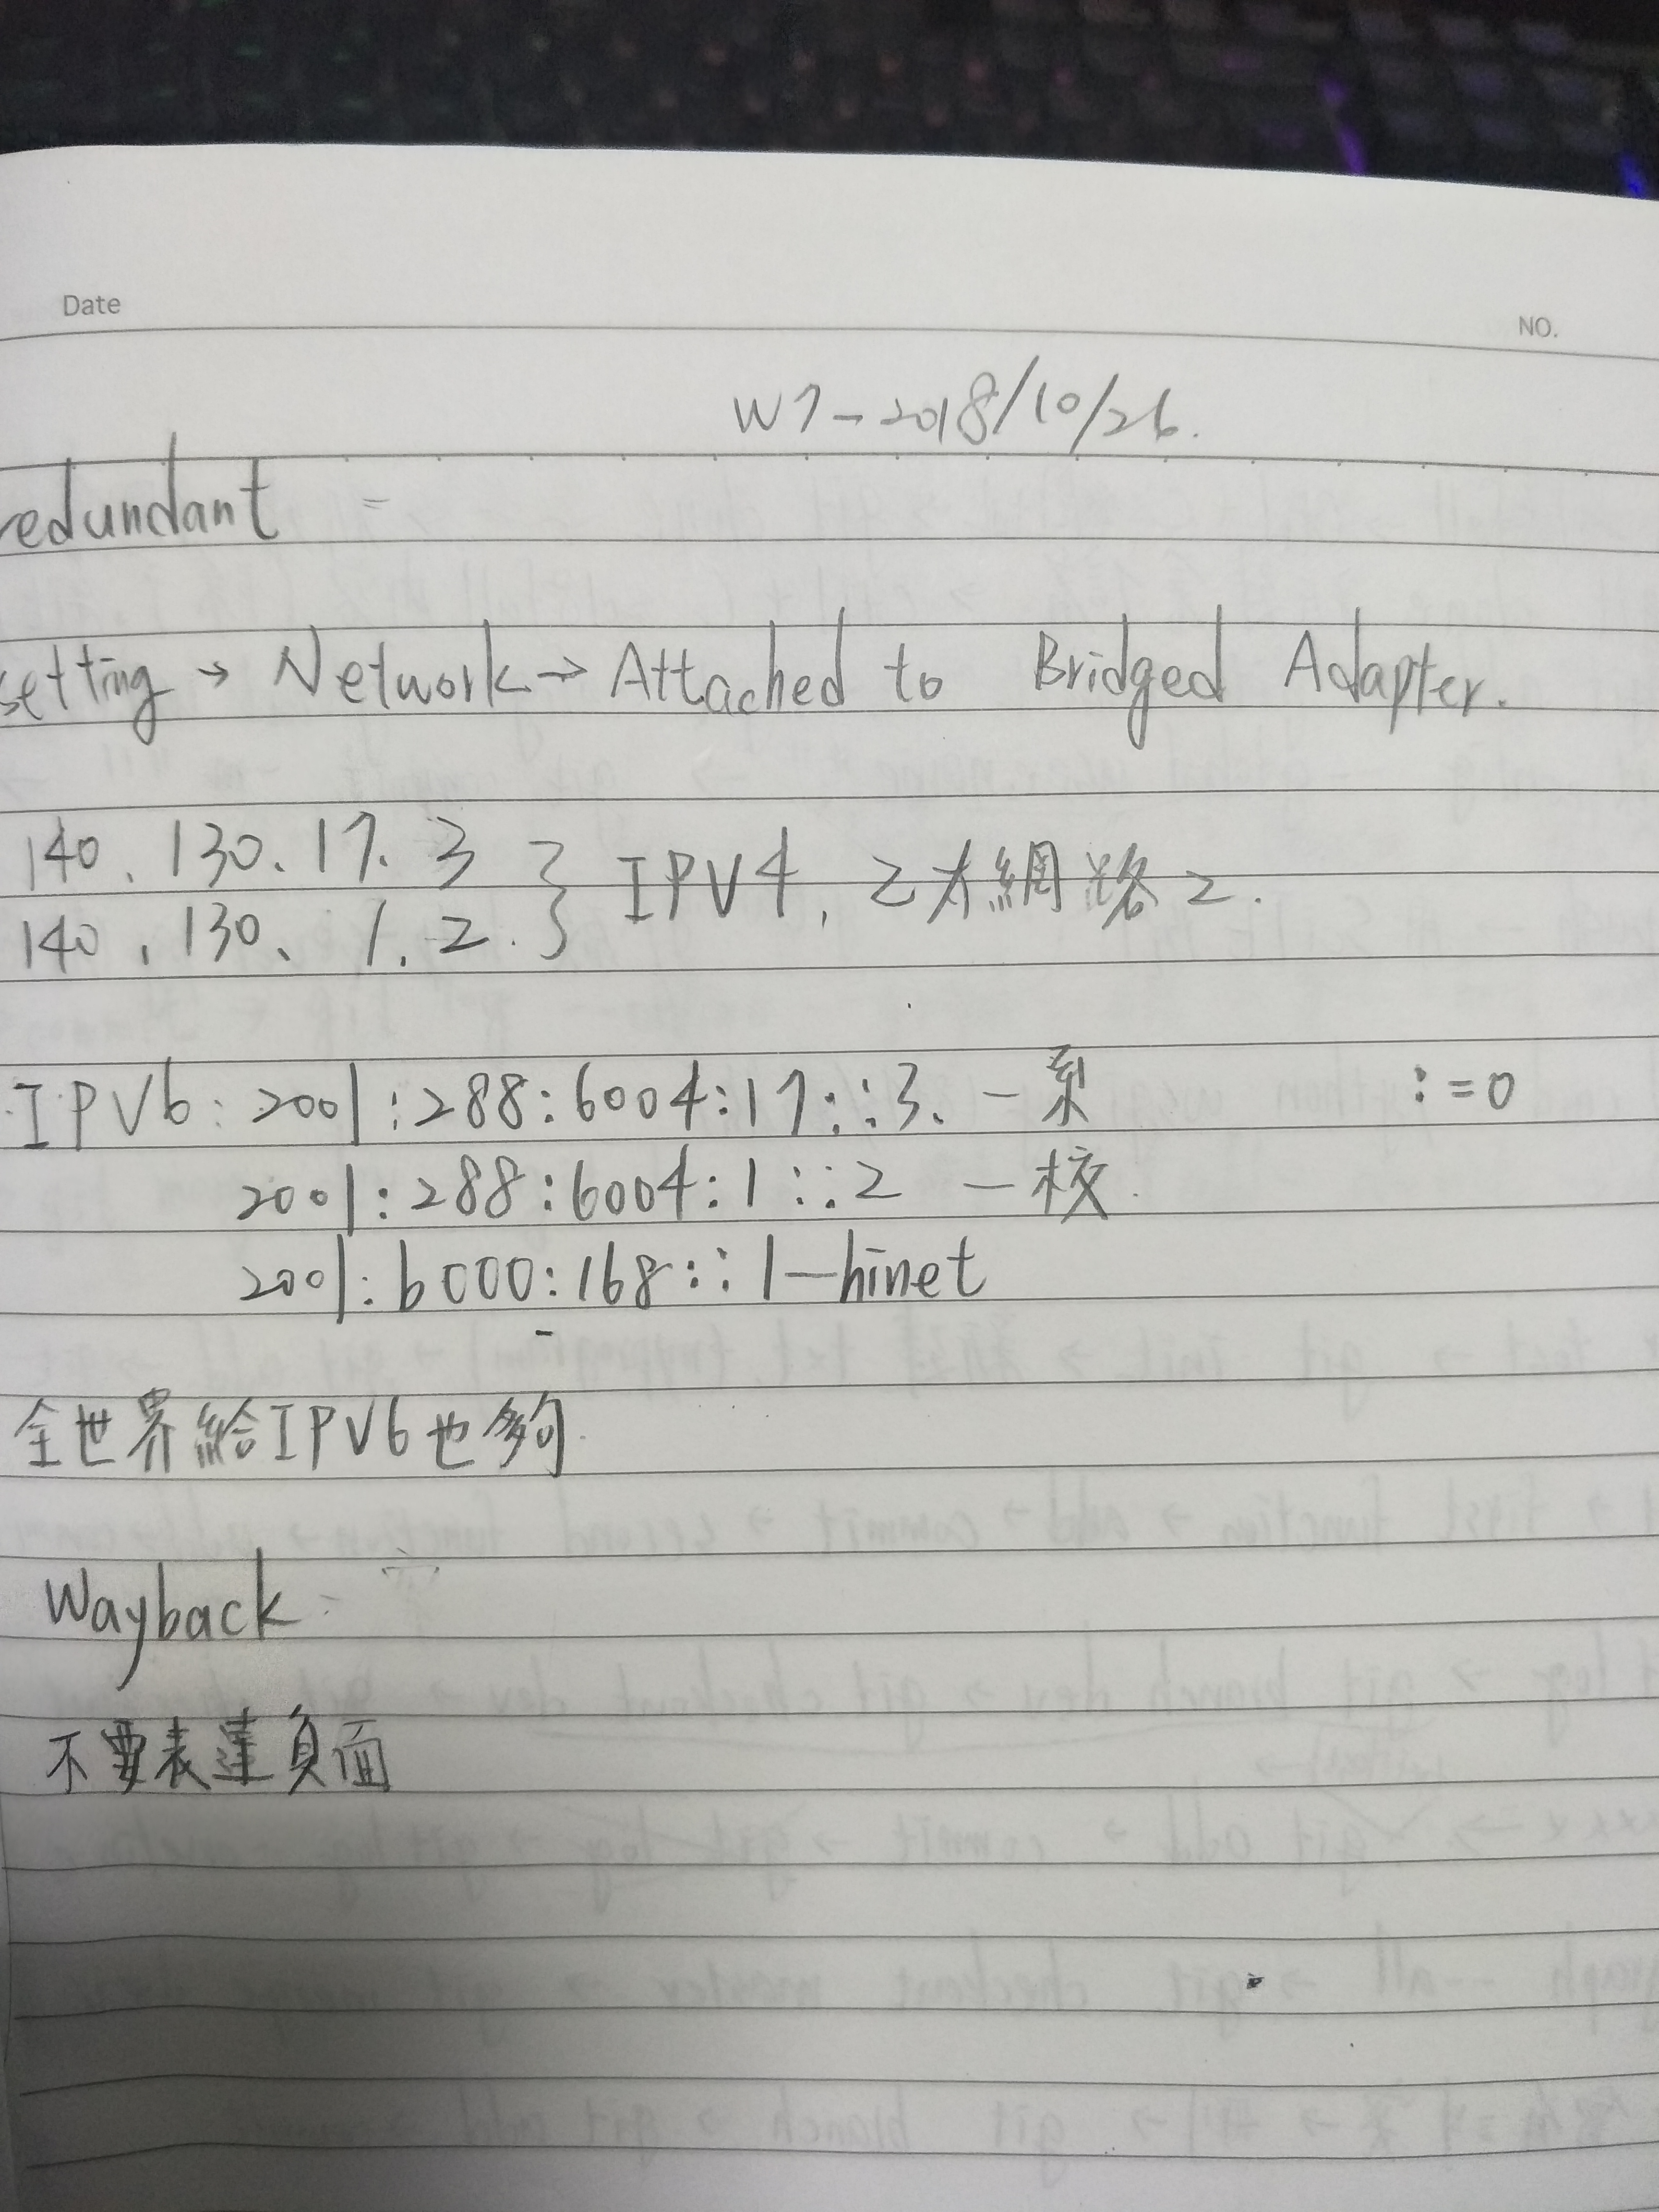 Date
NO.
W7-2018/10/26.
redundant =
setting → Network → Attached to Bridged Adapter.
140.130.17.3 } IPV4, 網路
140.130.1.2.
IPV6: 2001:288:6004:17::3. - 系 :=0
2001:288:6004:1::2 - 校.
2001:b000:168::1 - hinet
全世界給IPV6也夠.
Wayback:
不要表達負面